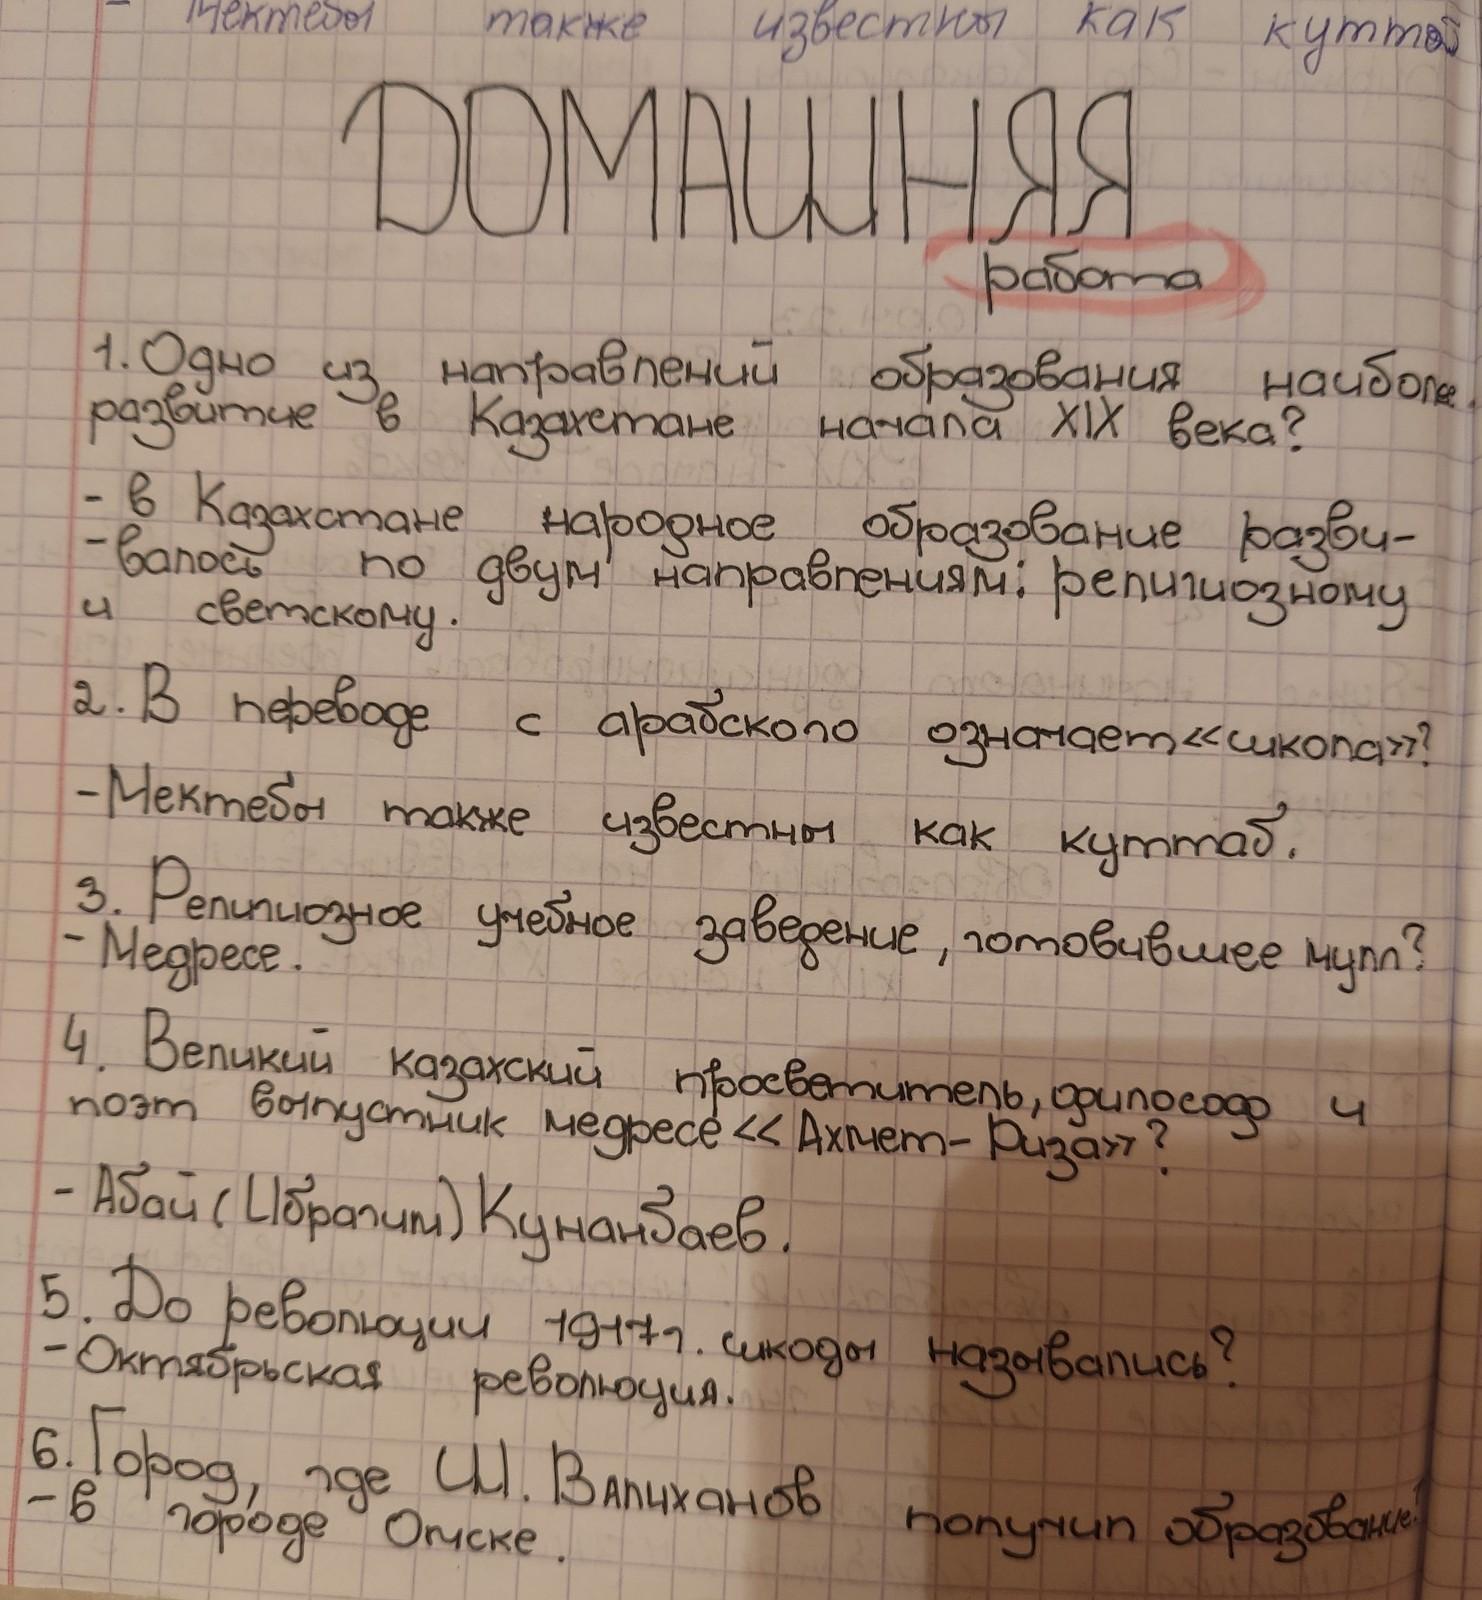 - Мектебы также известны как куттаб
ДОМАШНЯЯ
работа
1. Одно из направлений образования наиболе.
развитие в Казахстане начала XIX века?
- в Казахстане народное образование разви-
- валось по двум направлениям: религиозному
и светскому.
2. В переводе с арабского означает «школа»?
- Мектебы также известны как куттаб.
3. Религиозное учебное заведение, готовившее мулл?
- Медресе.
4. Великий казахский просветитель, философ и
поэт выпускник медресе «Ахмет-Риза»?
- Абай (Ибрагим) Кунанбаев.
5. До революции 1917г. школы назывались?
- Октябрьская революция.
6. Город, где Ш. Валиханов получил образование?
- в городе Омске.